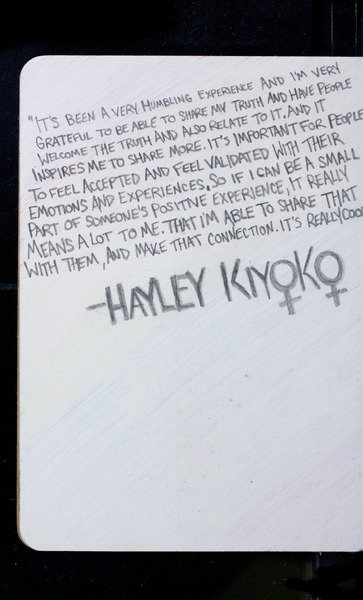 "IT'S BEEN A VERY HUMBLING EXPERIENCE AND I'M VERY
GRATEFUL TO BE ABLE TO SHARE MY TRUTH AND HAVE PEOPLE
WELCOME THE TRUTH AND ALSO RELATE TO IT. AND IT
INSPIRES ME TO SHARE MORE. IT'S IMPORTANT FOR PEOPLE
TO FEEL ACCEPTED AND FEEL VALIDATED WITH THEIR
EMOTIONS AND EXPERIENCES. SO IF I CAN BE A SMALL
PART OF SOMEONE'S POSITIVE EXPERIENCE, IT REALLY
MEANS A LOT TO ME. THAT I'M ABLE TO SHARE THAT
WITH THEM, AND MAKE THAT CONNECTION. IT'S REALLY COOL
-HAYLEY KIYOKO